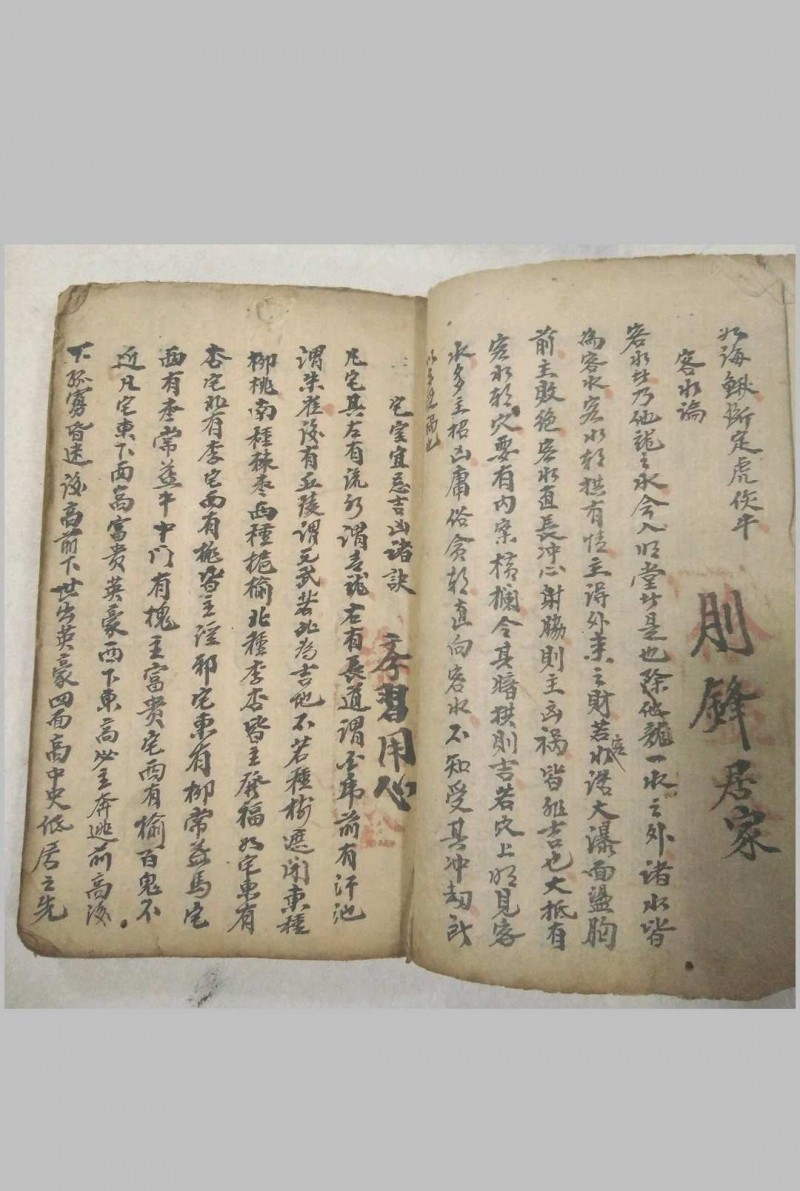 如海鰍斷定虎
客水論
客水者乃他龍之水今入明堂者是也除他龍一水之外諸水皆
為客水客水朝拱有情主得外来之財若水浩大瀑面盪胸
前主敗絕客水直長冲心射脇則主凶禍皆非吉也大抵有
客水朝穴要有内案橫攔令其暗拱則吉若穴上明見客
水多主招凶庸俗貪朝直向客水不知受其冲刼
以多見禍也
則鋒居家
宅室宜忌吉凶諸訣
李習用心
凡宅其左有流水謂青龍右有長道謂白虎前有汙池
謂朱雀後有丘陵謂元武若此為吉他不若種樹遮閉東種
柳桃南種棘棗西種梔榆北種李杏皆主發福如宅東有
杏宅北有李宅西有桃皆主淫邪宅東有柳常益馬宅
西有棗常益牛中門有槐主富貴宅西有榆百鬼不
近凡宅東下西高富貴英豪西下東高必主奔逃前高後
下孤寡昏迷後高前下世出英豪四面高中央低居之先